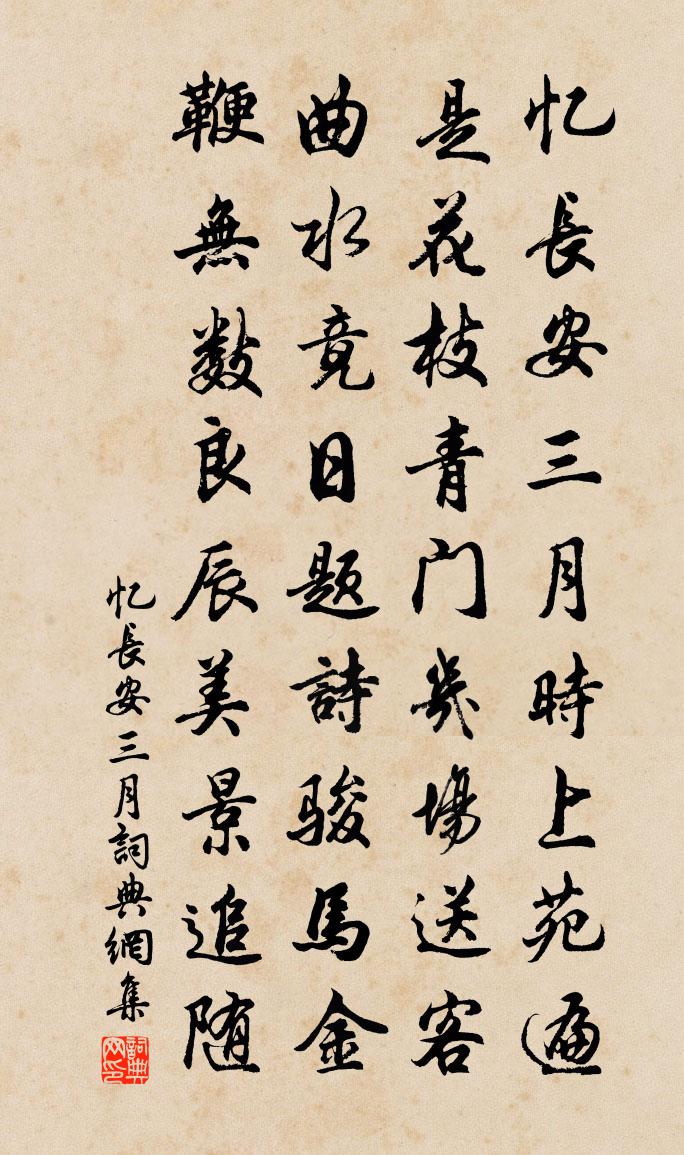 忆長安三月時上苑遍
是花枝青门幾場送客
曲水竟日题詩骏馬金
鞭無数良辰美景追随
忆長安三月詞典網集
詞典网印